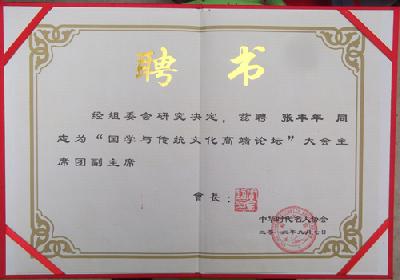 聘书
经组委会研究决定，兹聘 张丰年 同
志为“国学与传统文化高端论坛”大会主
席团副主席
會长：
中华时代名人协会
二〇一六年九月七日